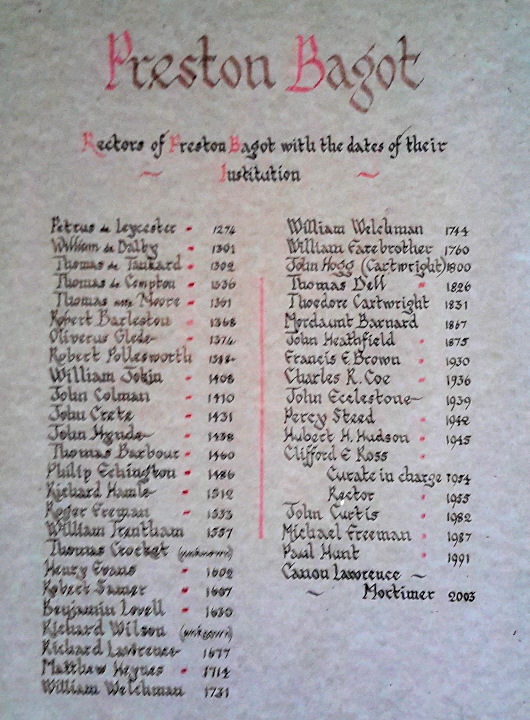 Preston Bagot
Rectors of Preston Bagot with the dates of their
Institution
Petrus de Leycester - 1274
William de Dalby - 1301
Thomas de Tankard - 1302
Thomas de Compton - 1336
Thomas Moore - 1361
Robert Barleston 1368
Oliverus Glede - 1374
Robert Pollesworth
William Jokin - 1408
John Colman 1410
John Crete - 1431
John Hynde - 1438
Thomas Barbour - 1460
Philip Echington - 1486
Richard Hamle - 1512
Roger Freman - 1533
William Trentham 1557
Thomas Crocket (unknown)
Henry Evans - 1602
Robert Samer - 1607
Benjamin Lovell - 1630
Richard Wilson (unknown)
Richard Lawrence 1677
Matthew Heynes - 1714
William Welchman 1731
William Welchman 1744
William Farebrother 1760
John Hogg (Cartwright) 1800
Thomas Dell - 1826
Theodore Cartwright 1831
Mordaunt Barnard 1867
John Heathfield - 1875
Francis E. Brown - 1930
Charles R. Coe - 1936
John Ecclestone 1939
Percy Steed - 1942
Hubert H. Hudson - 1945
Clifford E Ross -
Curate in charge 1954
Rector - 1955
John Curtis - 1982
Michael Freeman - 1987
Paul Hunt - 1991
Canon Lawrence ~
~ Mortimer 2003